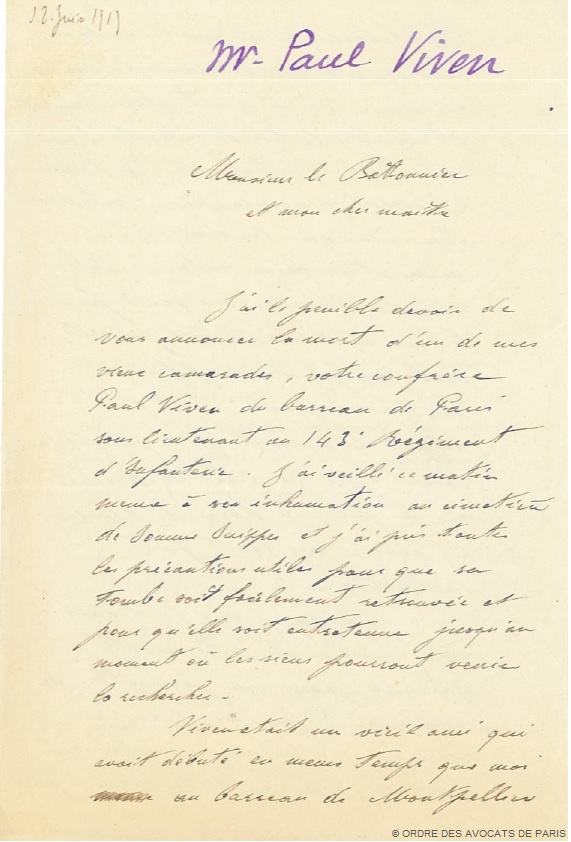 12. Juin 1919
Mr. Paul Viven
Monsieur le Bâtonnier
et mon cher maître
J'ai le penible devoir de
vous annoncer la mort d'un de mes
vieux camarades, votre confrère
Paul Viven du barreau de Paris
sous lieutenant au 143e Régiment
d'Infanterie. J'ai veillé ce matin
meme à son inhumation au cimetière
de Somme Suippes et j'ai pris toutes
les précautions utiles pour que sa
tombe soit facilement retrouvée et
pour qu'elle soit entretenue jusqu'au
moment où les siens pourront venir
la rechercher -
Viven etait un vieil ami qui
avait débuté en meme temps que moi
au barreau de Montpellier
© ORDRE DES AVOCATS DE PARIS